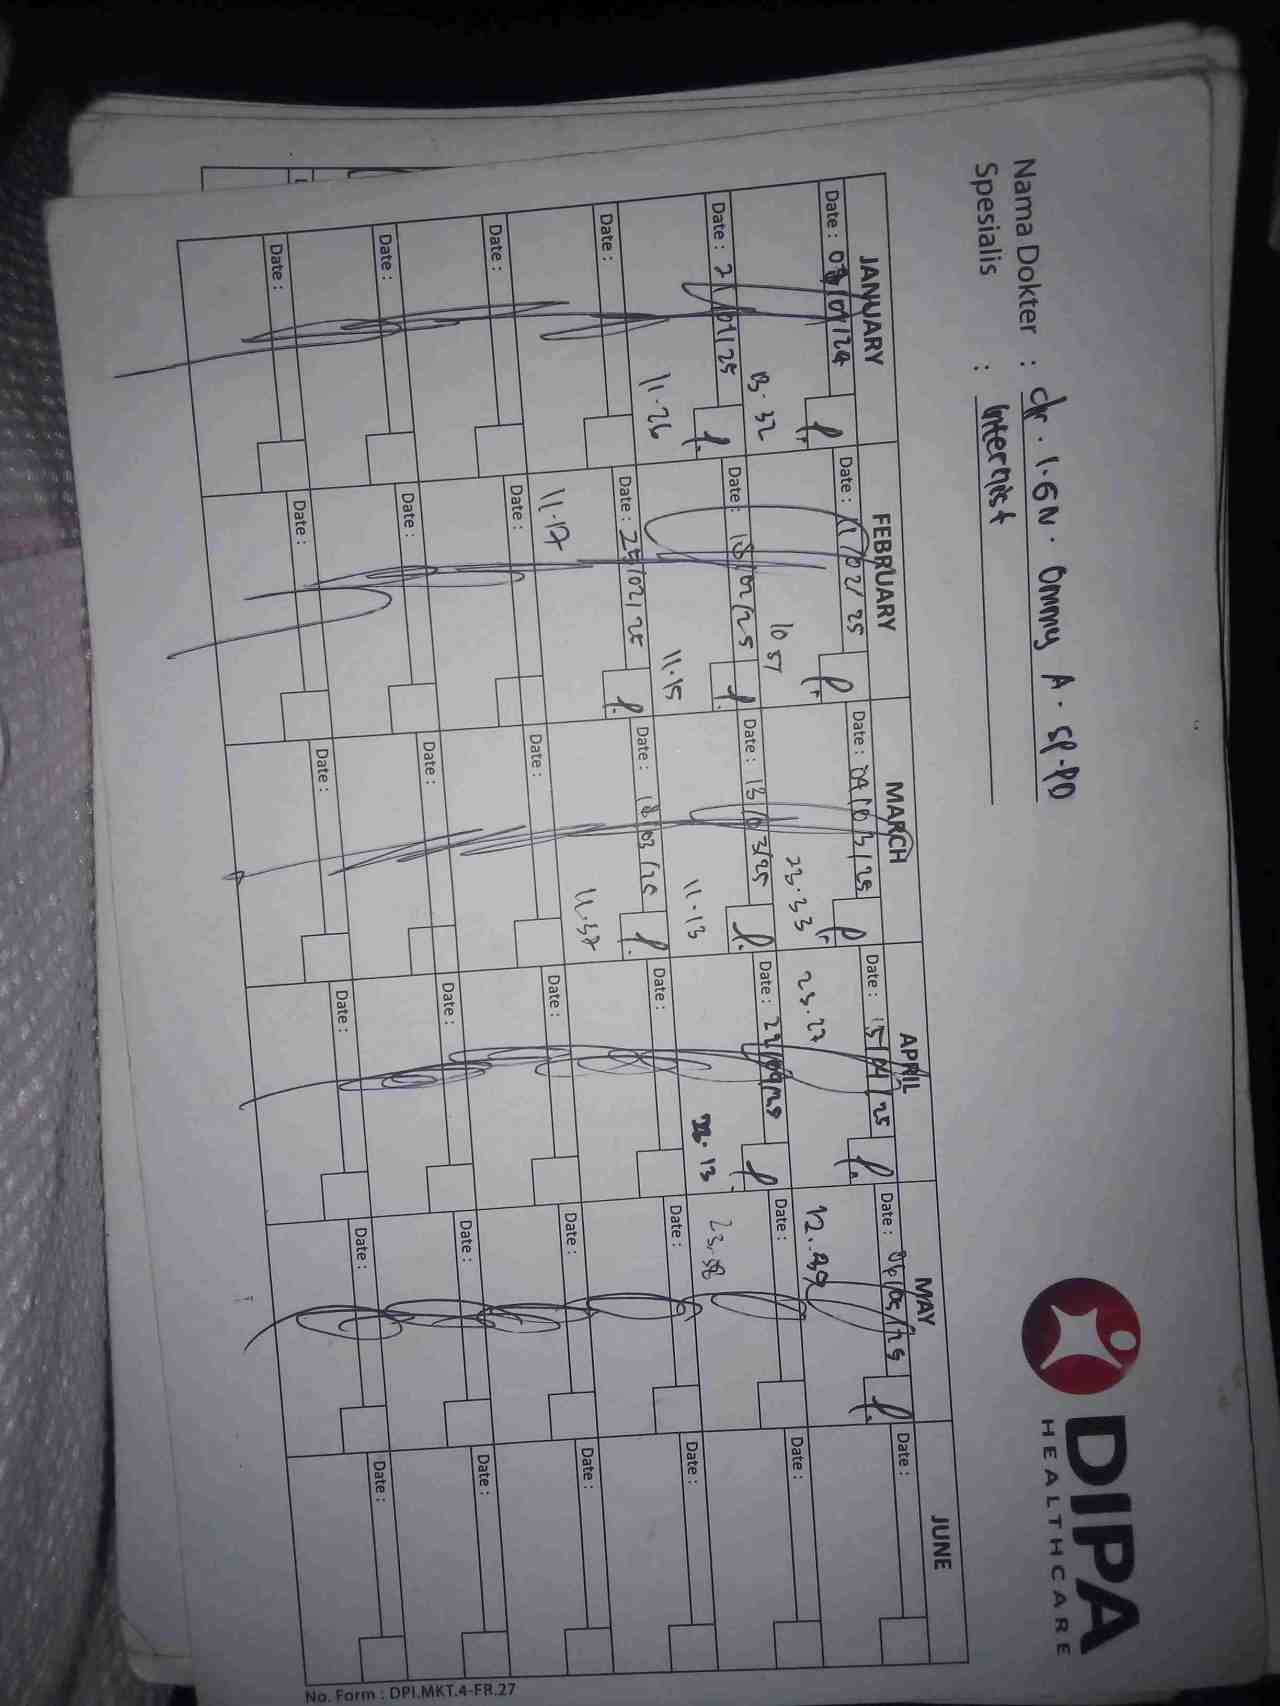 Nama Dokter : dr. I.GN. Ommy A. SP-PD
Spesialis : Internist
DIPA
HEALTHCARE
JANUARY FEBRUARY MARCH APRIL MAY JUNE
Date : 07/01/24 Date : 11/02/25 Date : 04/03/25 Date : 15/04/25 Date : 06/05/25 Date :
13.32 10 57 23.33 23.27 12.49
Date : 21/01/25 Date : 18/02/25 Date : 13/03/25 Date : 22/04/25 Date : Date :
11.26 11.15 11.13 13 23.58
Date : Date : 25/02/25 Date : 18/03/25 Date : Date : Date :
11.17 11.37
Date : Date : Date : Date : Date : Date :
Date : Date : Date : Date : Date : Date :
Date : Date : Date : Date : Date : Date :
No. Form : DPI.MKT.4-FR.27